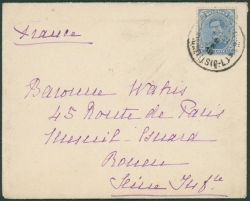 France
Baronne Watris
45 Route de Paris
Mesnil-Esnard
Rouen
Seine Inf<sup>re</sup>